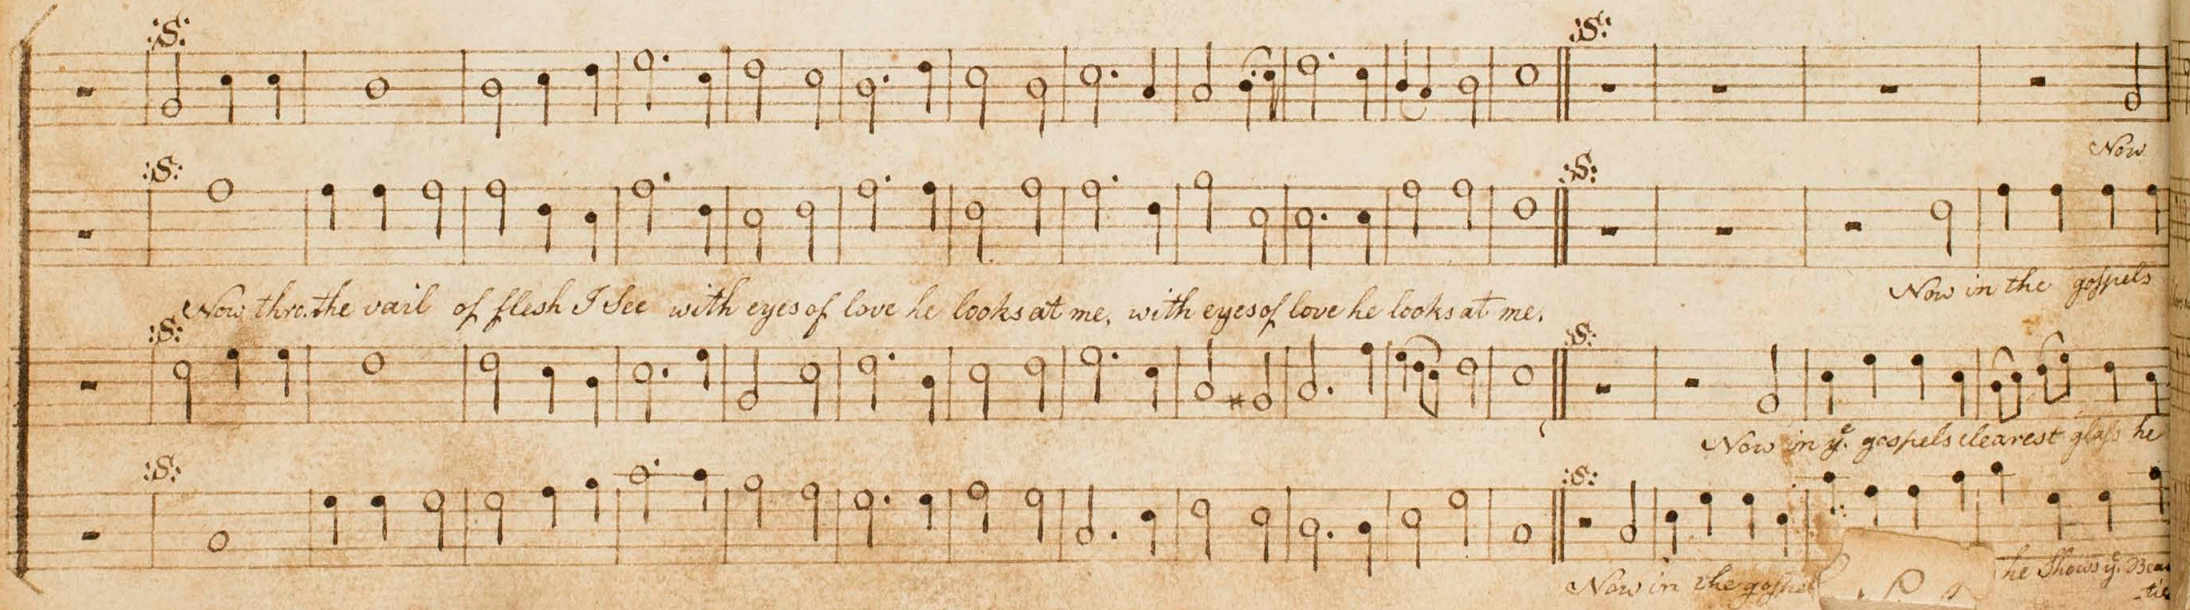 :S: :S:
Now
:S: :S:
Now in the gospels
Now thro. the vail of flesh I See with eyes of love he looks at me, with eyes of love he looks at me.
:S: :S:
Now in ye. gospels clearest glass he
:S: :S:
Now in the gospel he Shows ye. Beau
ties